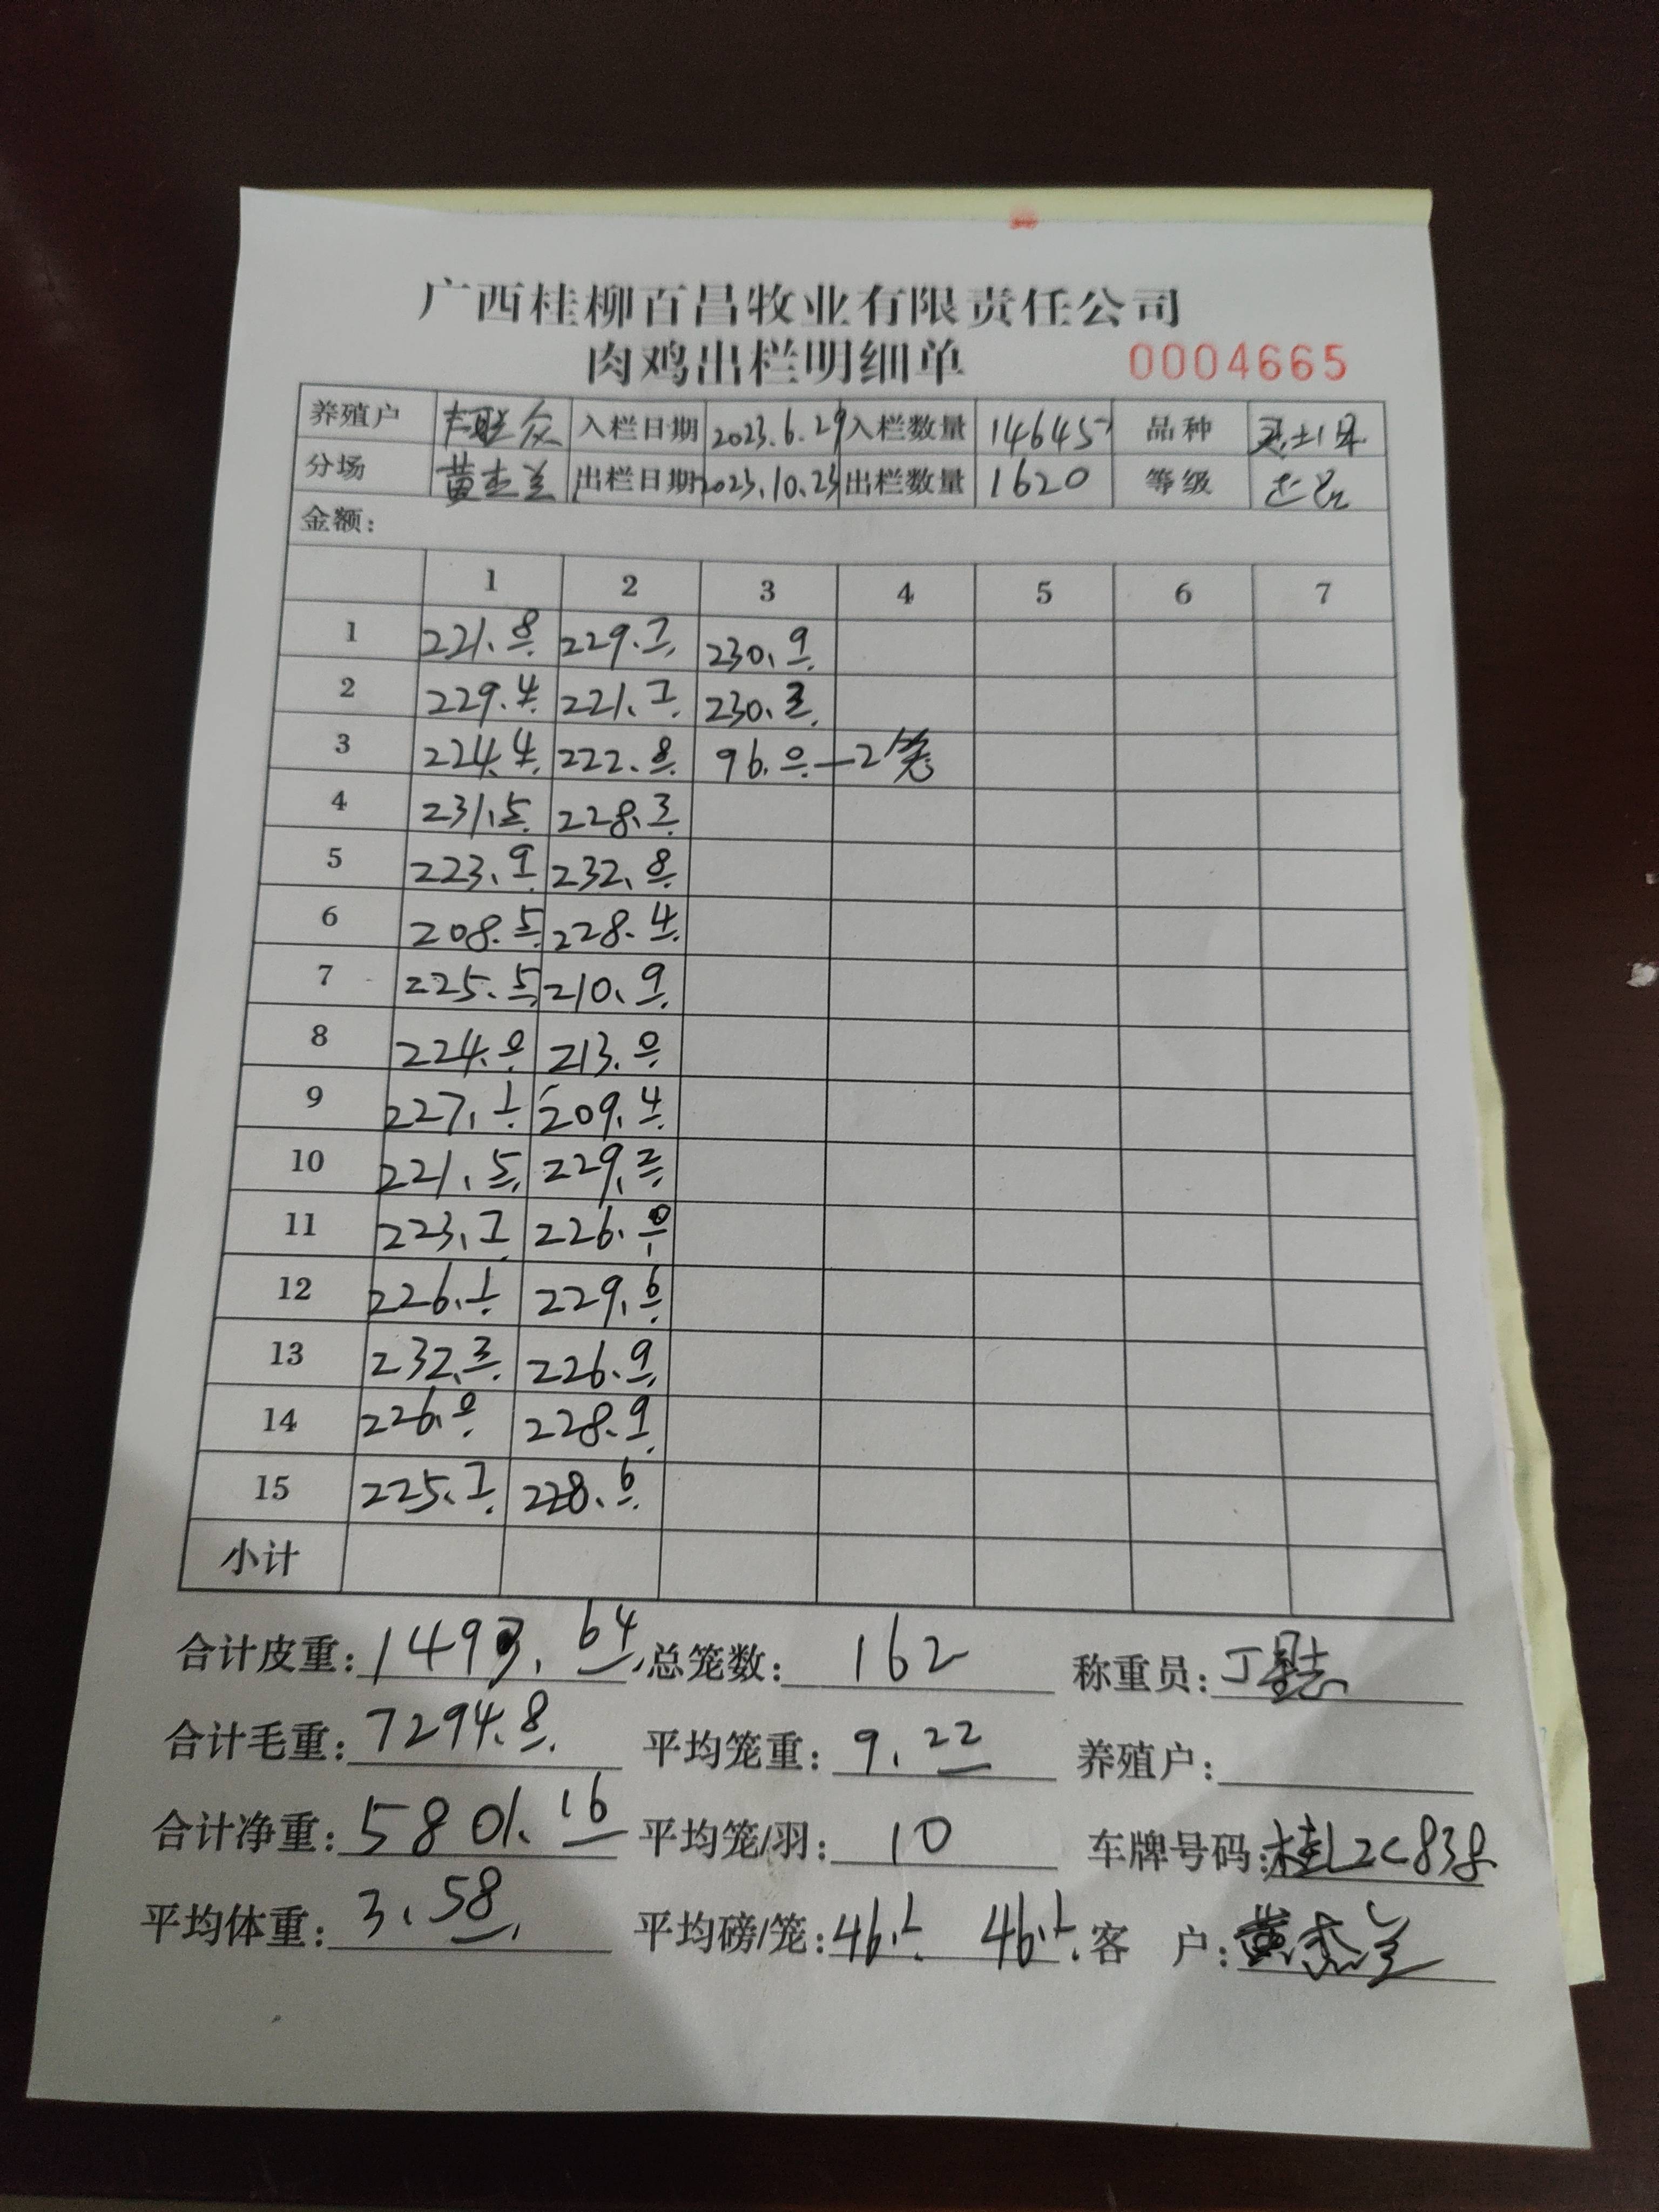 广西桂柳百昌牧业有限责任公司
肉鸡出栏明细单 0004665
养殖户 韦联众 入栏日期 2023.6.29 入栏数量 14645 品种
分场 黄杰兰 出栏日期 2023.10.23 出栏数量 1620 等级 正品
金额:
1 2 3 4 5 6 7
1 221.8 229.7 230.9
2 229.4 221.7 230.3
3 224.4 222.8 96.0—2笼
4 231.5 228.3
5 223.9 232.8
6 208.5 228.4
7 225.5 210.9
8 224.0 213.0
9 227.1 209.4
10 221.5 229.2
11 223.7 226.0
12 226.1 229.6
13 232.3 226.9
14 226.0 228.9
15 225.7 228.6
小计
合计皮重: 1493.64 总笼数: 162 称重员:
合计毛重: 7294.8 平均笼重: 9.22 养殖户:
合计净重: 5801.16 平均笼/羽: 10 车牌号码: 桂L2C838
平均体重: 3.58 平均磅/笼: 46.1 46.1 客 户: 黄杰兰